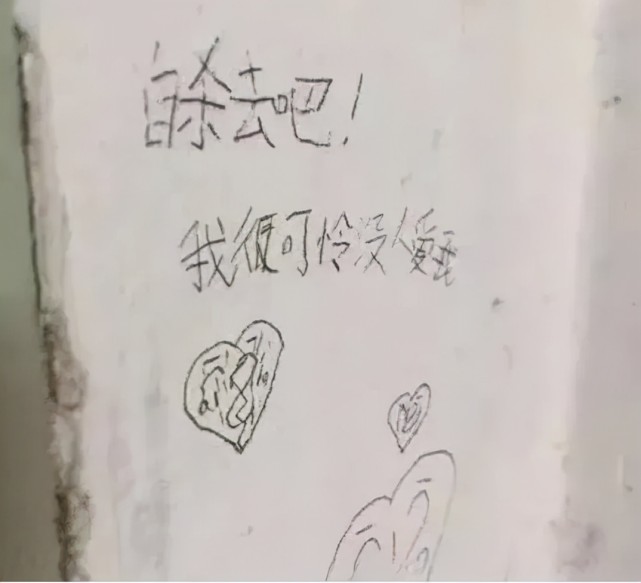 自杀去吧!
我很可怜没人爱